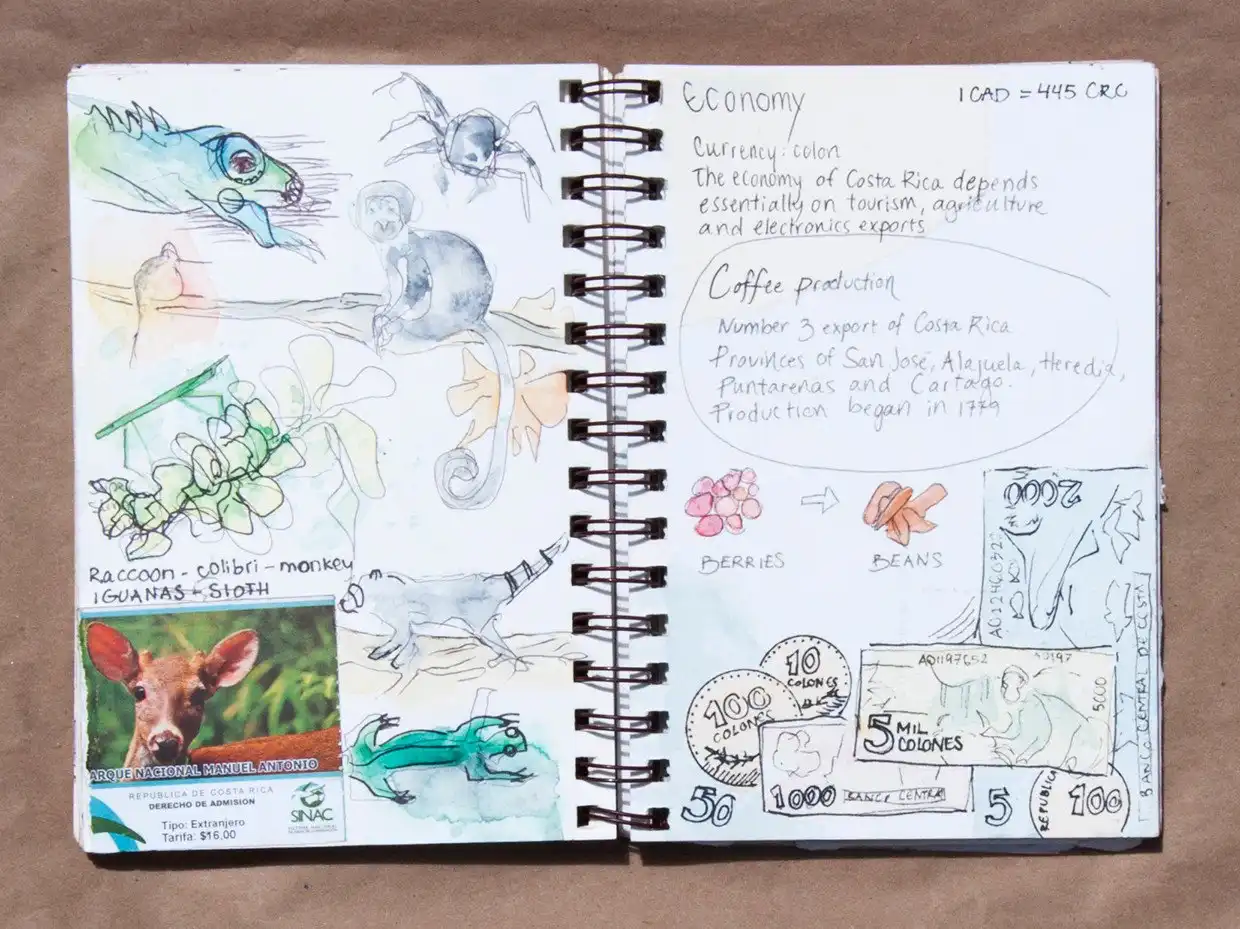 Raccoon - colibri - monkey
IGUANAS - SLOTH
ARQUE NACIONAL MANUEL ANTONIO
REPUBLICA DE COSTA RICA
DERECHO DE ADMISION
Tipo: Extranjero
Tarifa: $16,00
SINAC
Economy
1 CAD = 445 CRC
Currency: colon
The economy of Costa Rica depends
essentially on tourism, agriculture
and electronics exports
Coffee production
Number 3 export of Costa Rica
Provinces of San José, Alajuela, Heredia,
Puntarenas and Cartago.
Production began in 1779
BERRIES
BEANS
2000
BANCO CENTRAL DE COSTA
10
COLONES
100
COLONES
A01197652
5000
5 MIL
COLONES
1000
BANCO CENTRAL
50
5
REPUBLICA
100